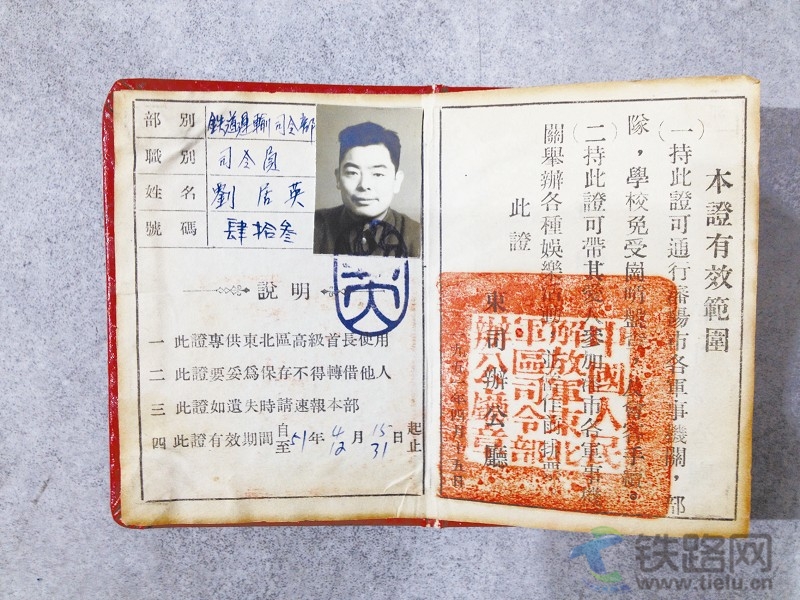 部別 鉄道運輸司令部
職別 司令員
姓名 劉居英
號碼 肆拾叁
說明
一 此證專供東北區高級首長使用
二 此證要妥爲保存不得轉借他人
三 此證如遺失時請速報本部
四 此證有效期間自51年4月15日起
至 12 31 止
本證有效範圍
(一)持此證可通行瀋陽市各軍事機關,部
隊,學校免受
(二)持此證可帶其愛人參加本市各軍事機
關舉辦各種娛樂活動
此證
東司辦公廳
年四月十五日
中國人民
解放軍東北
軍區司令部
辦公廳
铁路网
www.tielu.cn